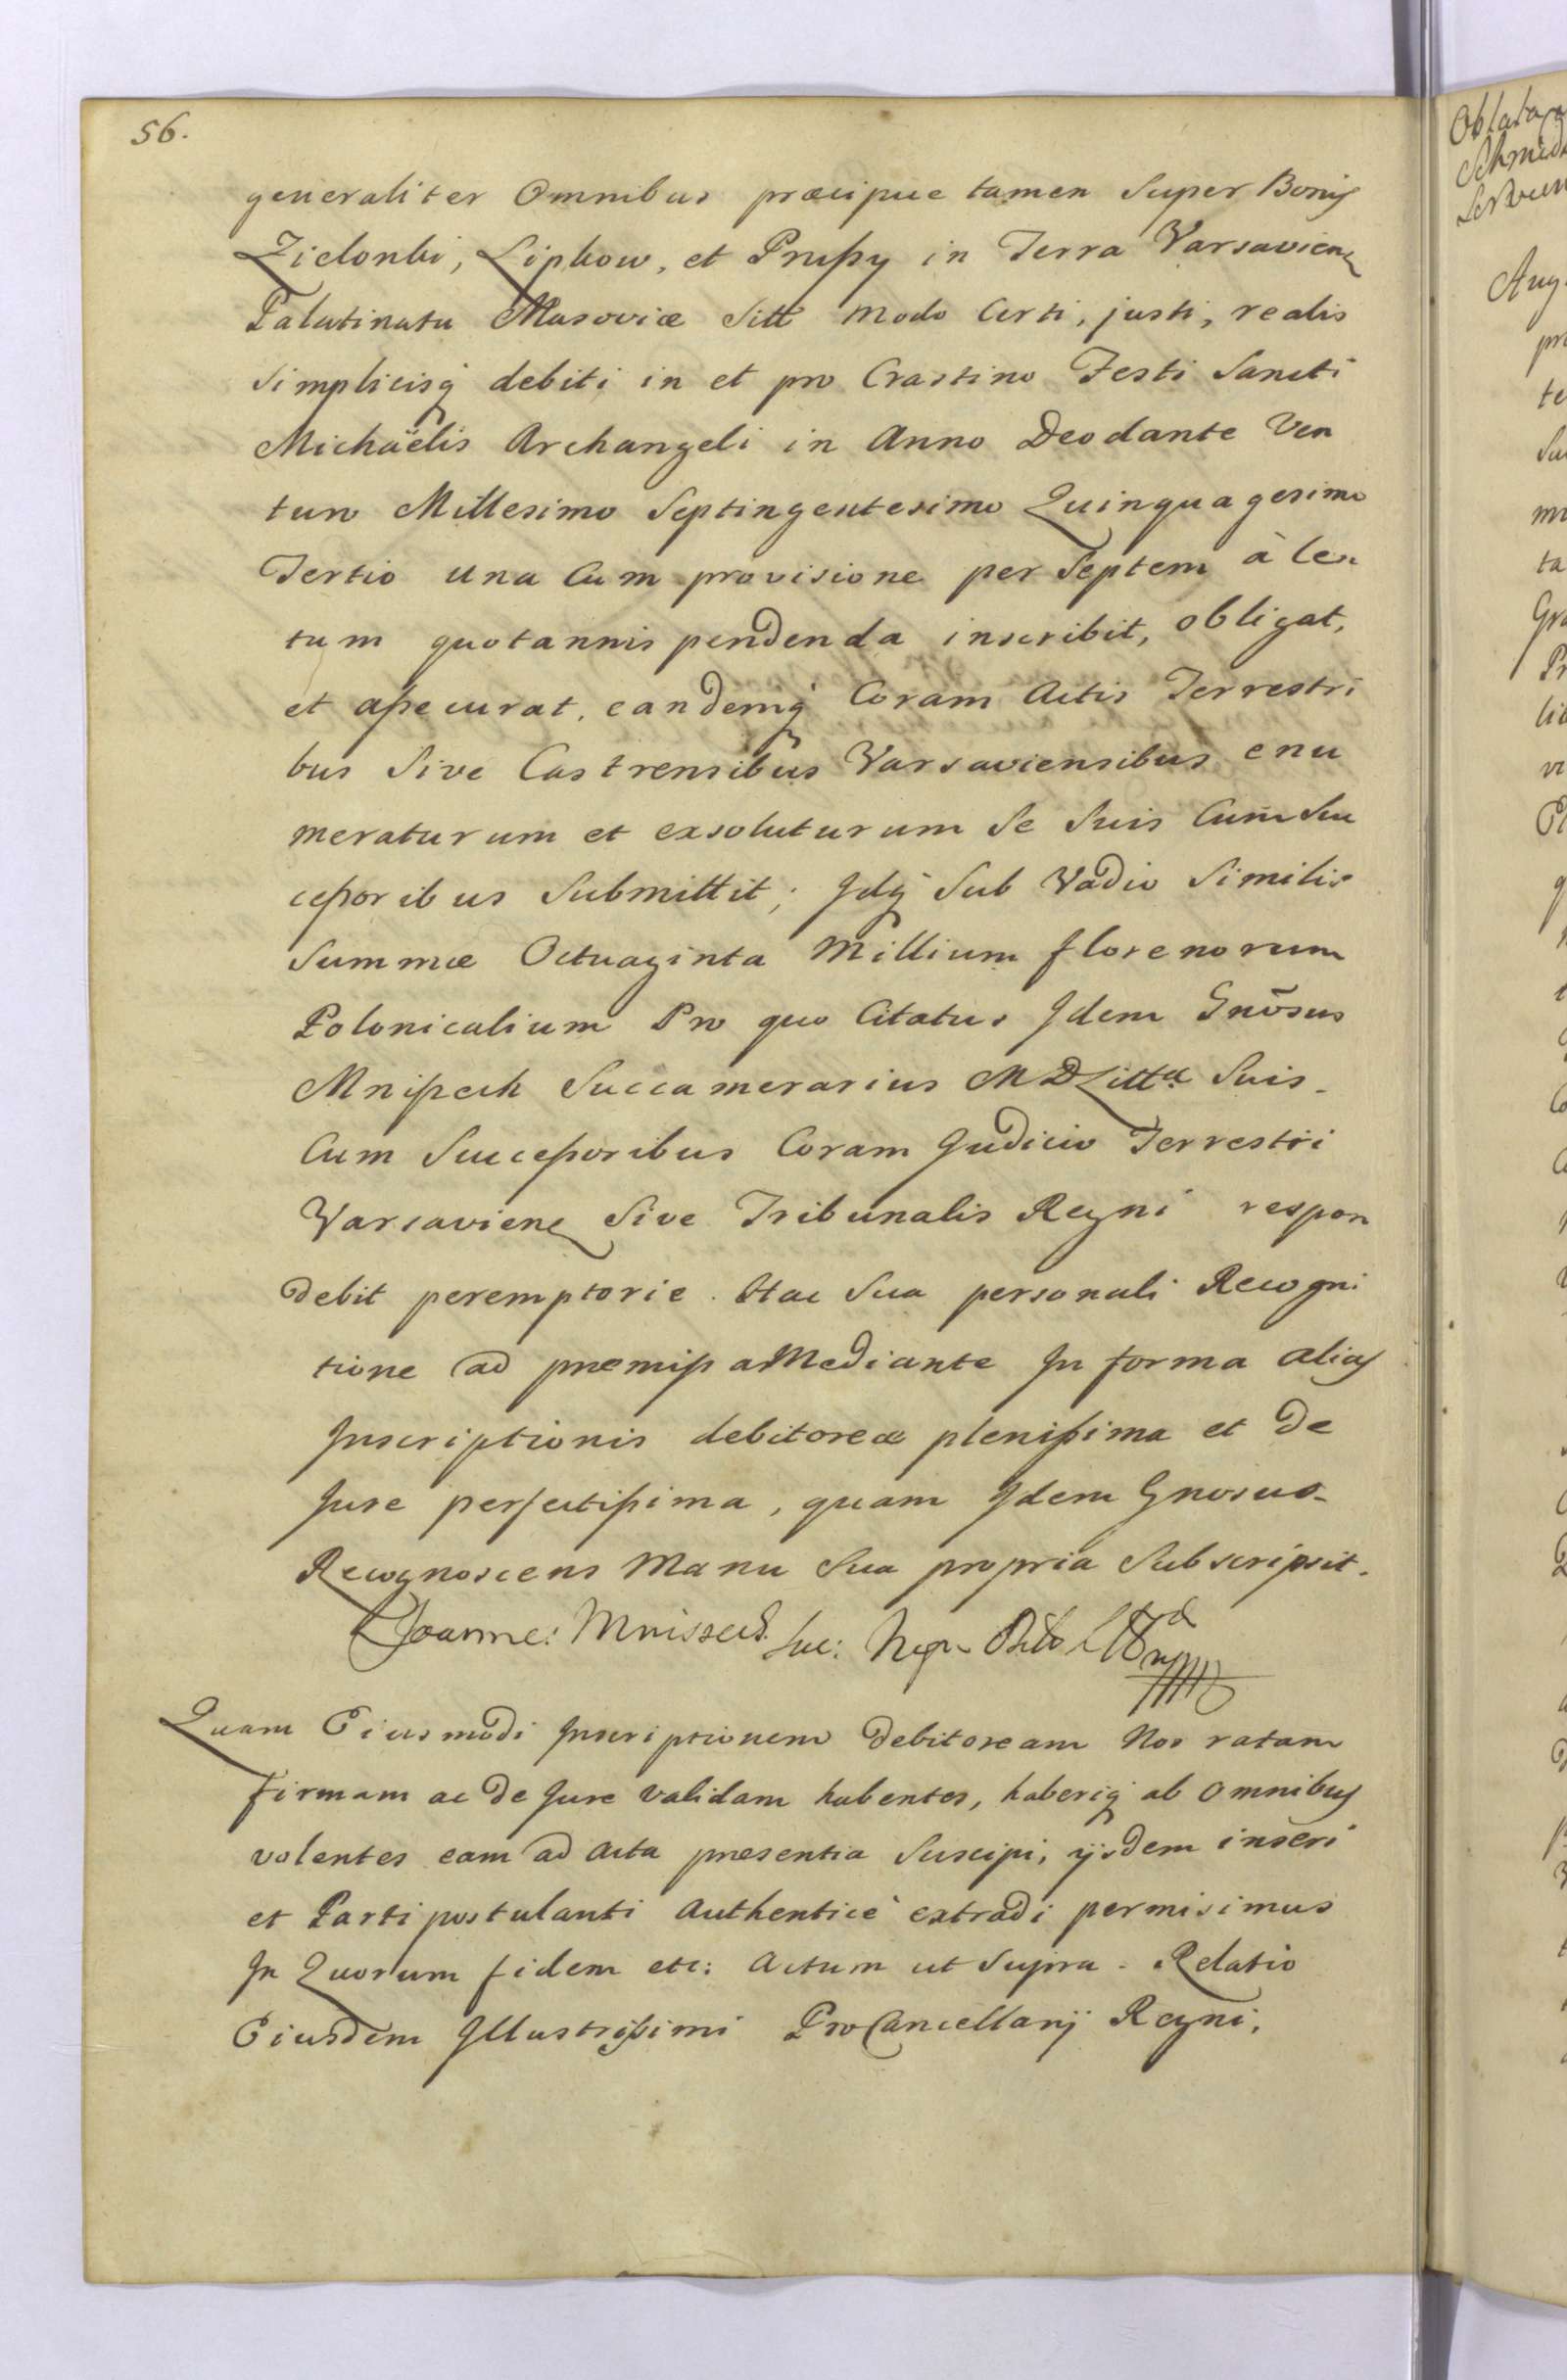 56.
generaliter Omnibus præcipue tamen Super Bonis
Zielonki, Lipkow, et Prussy in Terra Varsavien
Palatinatu Masoviæ Sitt modo Certi, justi, realis
simplicisq debiti in et pro Crastino Festi Sancti
Michäelis Archangeli in Anno Deodante Ven
turo Millesimo Septingentesimo Quinquagesimo
Tertio una Cum provisione per Septem à Cen
tum quotannis pendenda inscribit, obligat,
et assecurat, eandemq Coram Actis Terrestri
bus Sive Castrensibus Varsaviensibus enu
meraturum et exsoluturum Se Suis Cum Suc
cessoribus Submittit; Jdq Sub Vadio Similis
Summæ Octuaginta Millium florenorum
Polonicalium Pro quo Citatus Jdem Gnõsus
Mnissech Succamerarius M D Litt.æ Suis
Cum Successoribus Coram Judicio Terrestri
Varsavien Sive Tribunalis Regni respon
debit peremptorie. Hac Sua personali Recogni
tione ad præmissa Mediante Jn forma alias
Jnscriptionis debitoreæ plenissima et De
Jure perfectissima, quam Jdem Gnosus
Recognoscens Manu Sua propria Subscripsit.
Joannes Mnissech Suc:
Quam Eiusmodi Jnscriptionem Debitoream Nos ratam
firmam ac De Jure validam habentes, haberiq ab Omnibus
volentes eam ad Acta præsentia Suscipi, ijsdem inseri
et Parti postulanti Authenticè extradi permisimus
Jn Quorum fidem etc: Actum ut Supra. Relatio
Eiusdem Jllustrissimi ProCancellarij Regni.
Oblata
Schmid